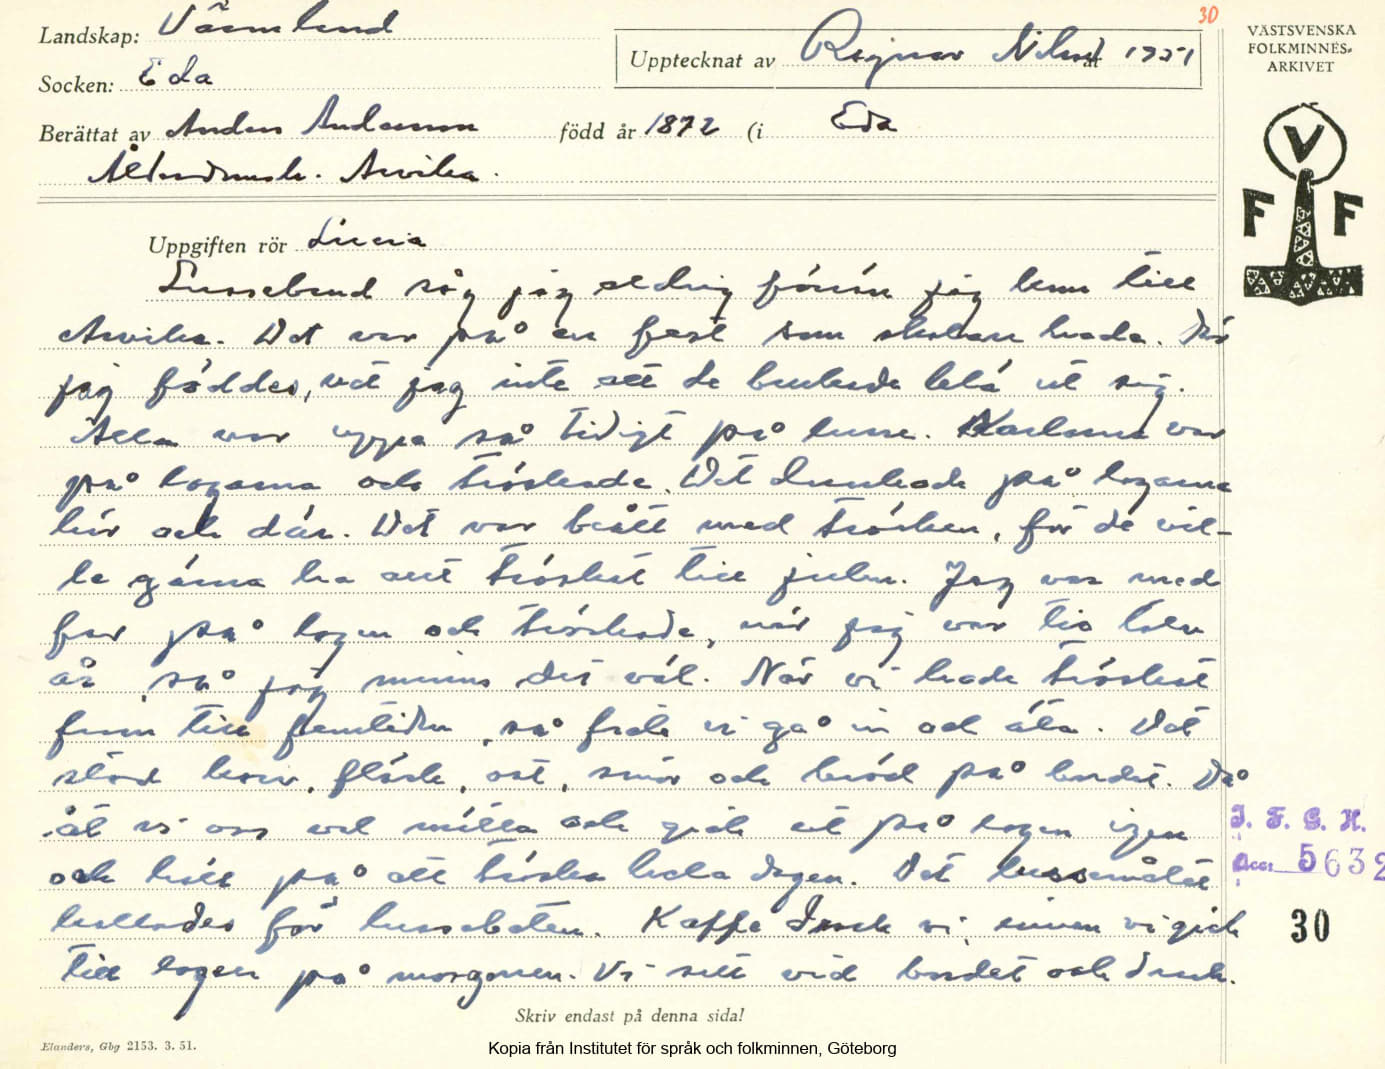 30
Landskap: Värmland
Upptecknat av Ragnar Nilsson år 1951
VÄSTSVENSKA
FOLKMINNES-
ARKIVET
Socken: Eda
Berättat av Anders Andersson född år 1872 (i Eda
Ålderdomsh. Arvika.
V
F F
Uppgiften rör Lucia
Lussebrud såg jag aldrig förrän jag kom till
Arvika. Det var på en fest som skolan hade. Där
jag föddes, vet jag inte att de brukade klä ut sig.
Alla var uppe så tidigt på lusse. Karlarna var
på logarna och tröskade. Det dunkade på logarna
här och där. Det var brått med trösken, för de vil-
le gärna ha allt tröskat till julen. Jag var med
far på logen och tröskade, när jag var tio tolv
år, så jag minns det väl. När vi hade tröskat
fram till framtiden, så fick vi gå in och äta. Det
stod korv, fläsk, ost, smör och bröd på bordet. Då
åt vi oss väl mätta och gick ut på logen igen
och höll på att tröska hela dagen. Det lussemålet
kallades för lussebeten. Kaffe drack vi, innan vi gick
till logen på morgonen. Vi satt vid bordet och drack.
I. F. G. H.
Acc: 5632
30
Skriv endast på denna sida!
Elanders, Gbg 2153. 3. 51.
Kopia från Institutet för språk och folkminnen, Göteborg